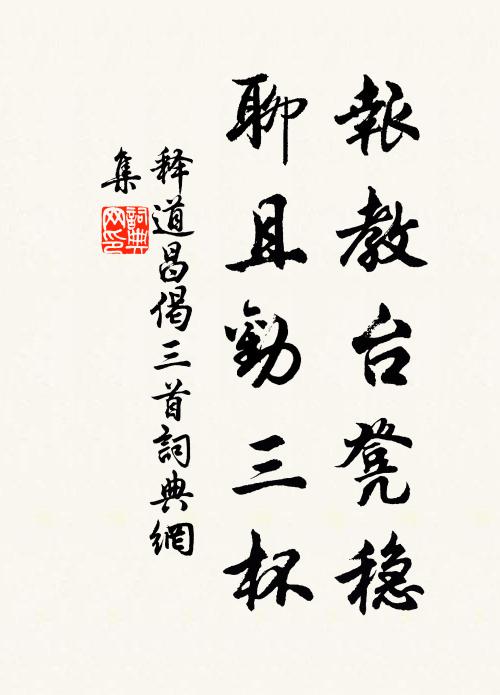 報教台凳稳
聊且勸三杯
释道昌偈三首詞典網
集
詞典
网印